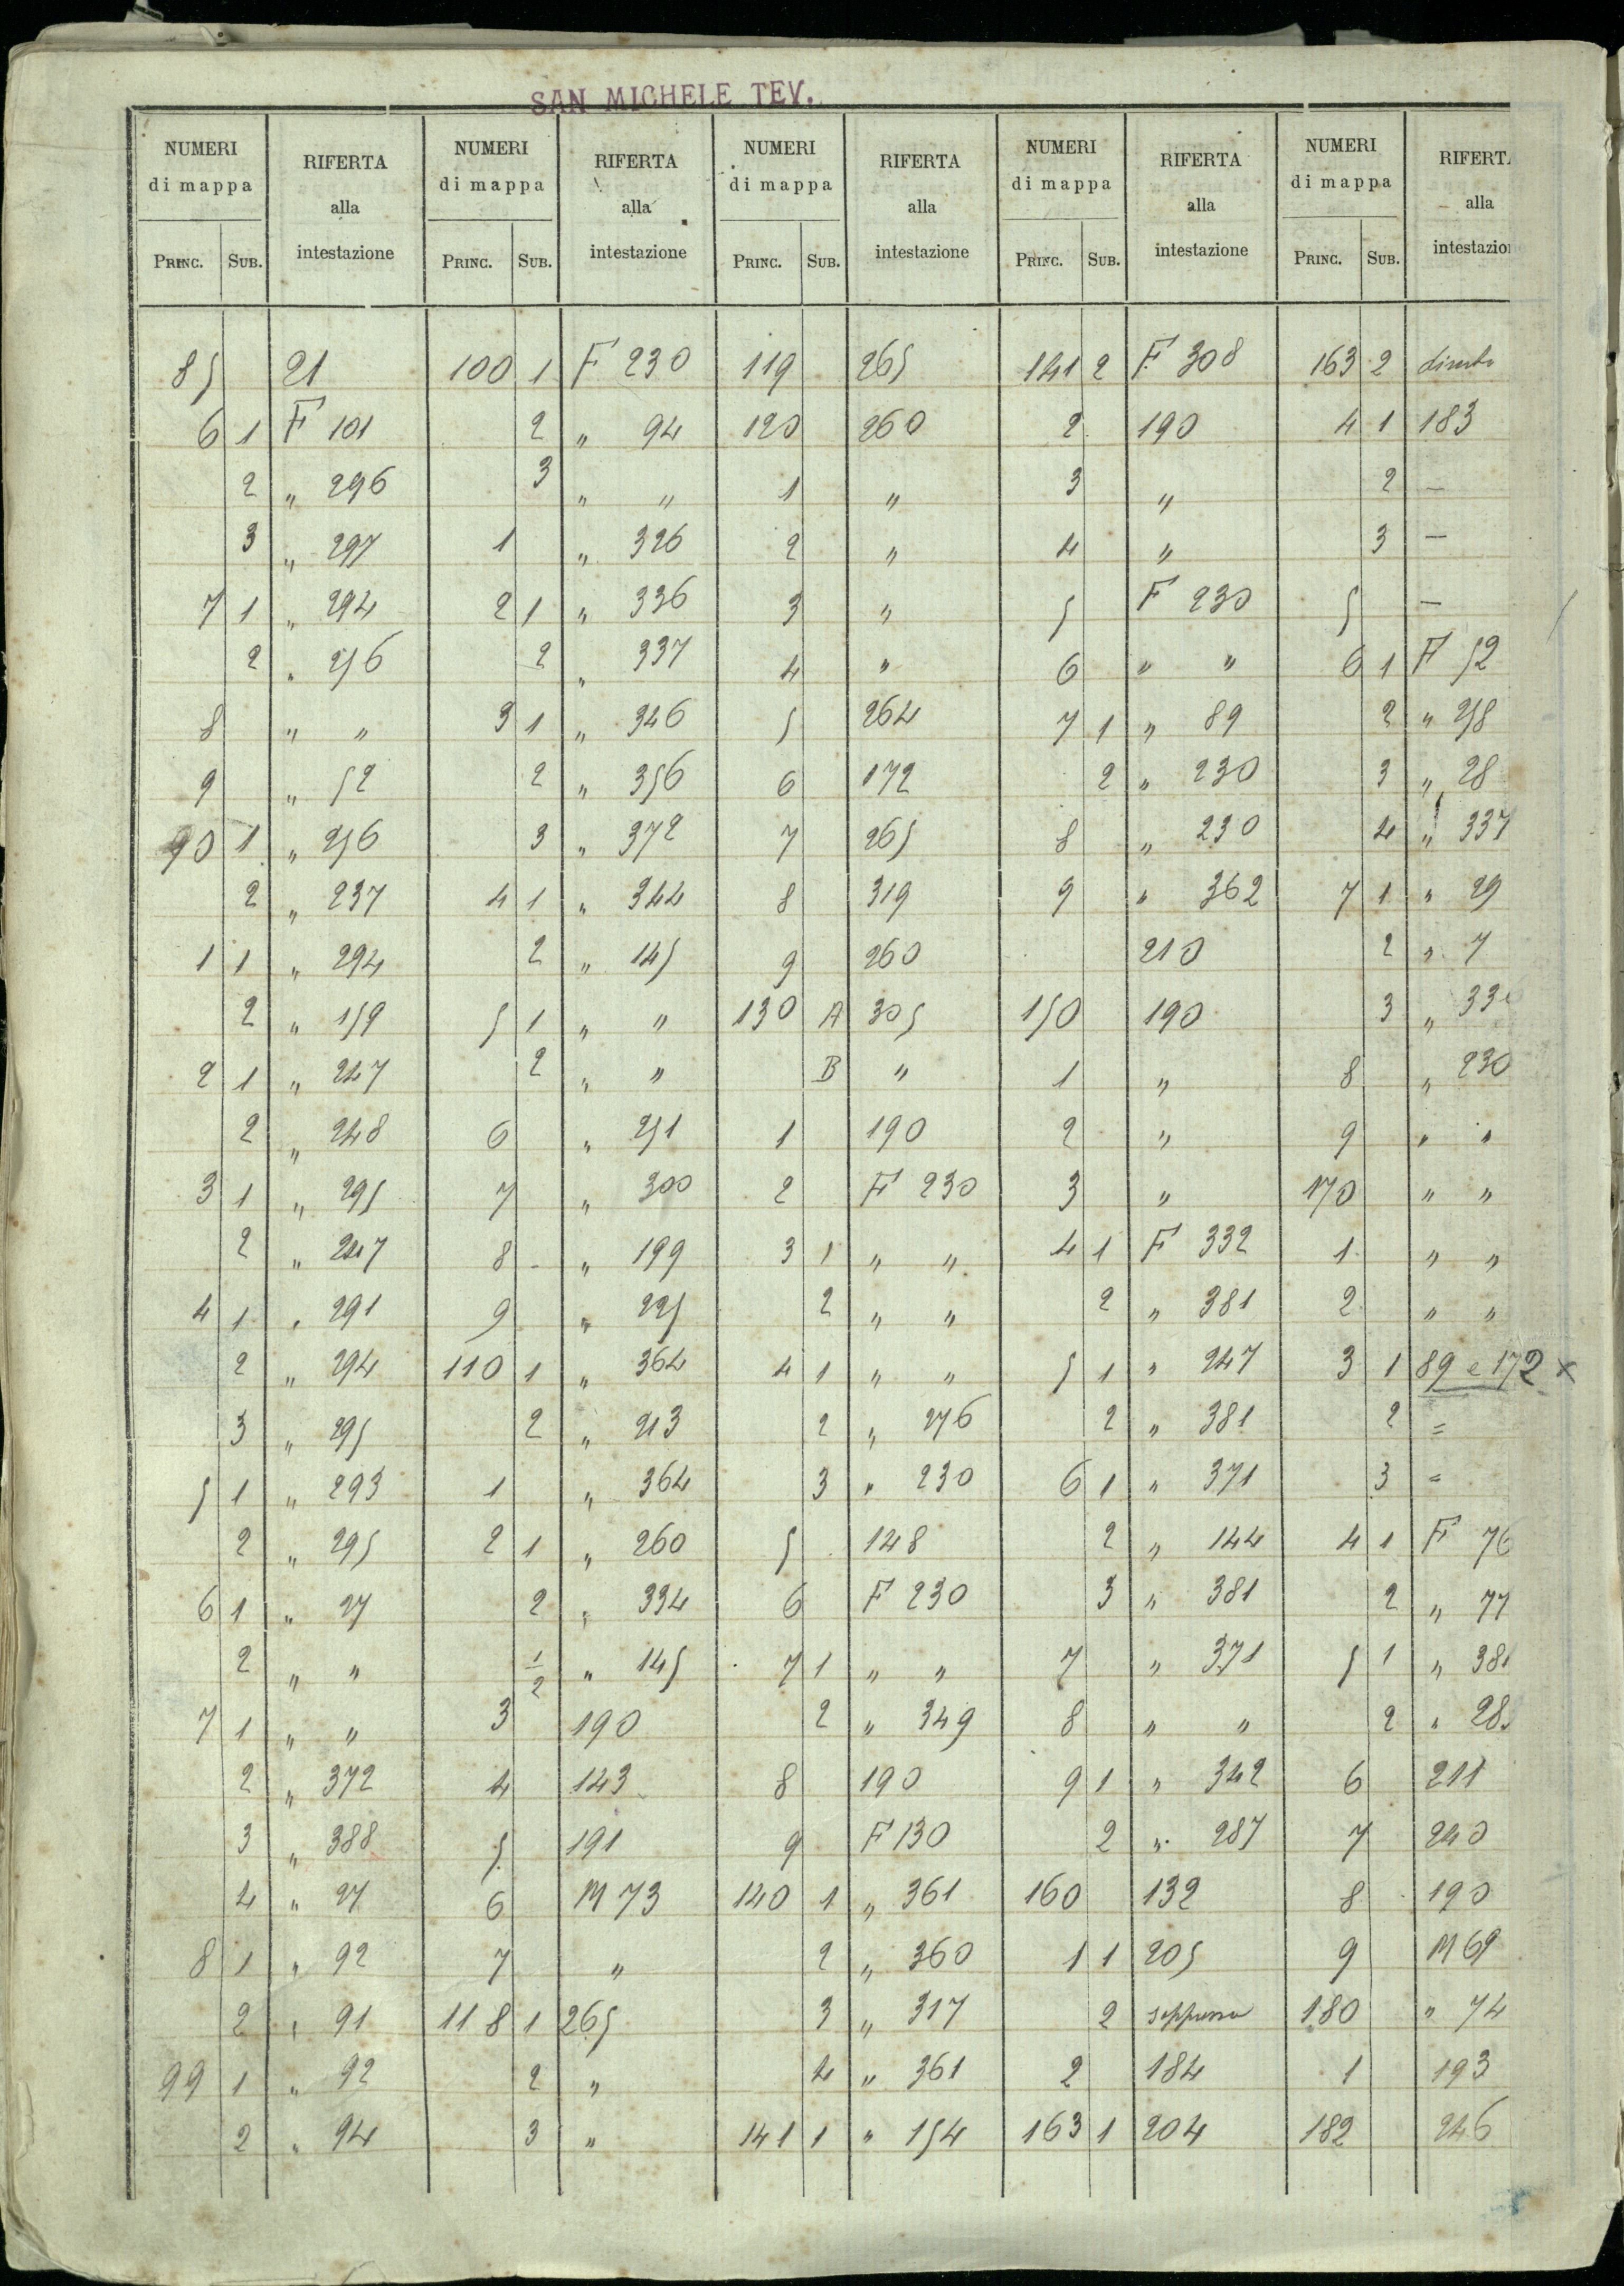 SAN MICHELE TEV.
NUMERI di mappa | RIFERTA alla intestazione | NUMERI di mappa | RIFERTA alla intestazione | NUMERI di mappa | RIFERTA alla intestazione | NUMERI di mappa | RIFERTA alla intestazione | NUMERI di mappa | RIFERT alla intestazio
PRINC. | SUB. | PRINC. | SUB. | PRINC. | SUB. | PRINC. | SUB. | PRINC. | SUB.
85 | | 21 | 100 | 1 | F 230 | 119 | | 265 | 141 | 2 | F 308 | 163 | 2 |
6 | 1 | F 101 | | 2 | " 94 | 120 | | 260 | 2 | | 190 | 4 | 1 | 183
| 2 | " 296 | | 3 | " " | 1 | | " | 3 | | " | | 2 | —
| 3 | " 297 | 1 | | " 326 | 2 | | " | 4 | | " | | 3 | —
7 | 1 | " 294 | 2 | 1 | " 336 | 3 | | " | 5 | | F 230 | 5 | | —
| 2 | " 256 | | 2 | " 337 | 4 | | " | 6 | | " " | 6 | 1 | F 52
8 | | " " | 3 | 1 | " 346 | 5 | | 264 | 7 | 1 | " 89 | | 2 | " 258
9 | | " 52 | | 2 | " 356 | 6 | | 172 | | 2 | " 230 | | 3 | " 28
90 | 1 | " 256 | | 3 | " 372 | 7 | | 265 | 8 | | " 230 | | 4 | " 337
| 2 | " 237 | 4 | 1 | " 344 | 8 | | 319 | 9 | | " 362 | 7 | 1 | " 29
1 | 1 | " 294 | | 2 | " 145 | 9 | | 260 | | | 210 | | 2 | " 7
| 2 | " 159 | 5 | 1 | " " | 130 | A | 305 | 150 | | 190 | | 3 | " 33
2 | 1 | " 247 | | 2 | " " | | B | " | 1 | | " | 8 | | " 230
| 2 | " 248 | 6 | | " 251 | 1 | | 190 | 2 | | " | 9 | | " "
3 | 1 | " 295 | 7 | | " 300 | 2 | | F 230 | 3 | | " | 170 | | " "
| 2 | " 247 | 8 | | " 199 | 3 | 1 | " " | 4 | 1 | F 332 | 1 | | " "
4 | 1 | " 291 | 9 | | " 225 | | 2 | " " | | 2 | " 381 | 2 | | " "
| 2 | " 294 | 110 | 1 | " 364 | 4 | 1 | " " | 5 | 1 | " 247 | 3 | 1 | 89 e 172 x
| 3 | " 295 | | 2 | " 213 | | 2 | " 276 | | 2 | " 381 | | 2 | =
5 | 1 | " 293 | 1 | | " 364 | | 3 | " 230 | 6 | 1 | " 371 | | 3 | =
| 2 | " 295 | 2 | 1 | " 260 | 5 | | 148 | | 2 | " 144 | 4 | 1 | F 76
6 | 1 | " 27 | | 2 | " 334 | 6 | | F 230 | | 3 | " 381 | | 2 | " 77
| 2 | " " | | 1/2 | " 145 | 7 | 1 | " " | 7 | | " 371 | 5 | 1 | " 381
7 | 1 | " " | 3 | | 190 | | 2 | " 349 | 8 | | " " | | 2 | " 28
| 2 | " 372 | 4 | | 143 | 8 | | 190 | 9 | 1 | " 342 | 6 | | 211
| 3 | " 388 | 5 | | 191 | 9 | | F 130 | | 2 | " 287 | 7 | | 240
| 4 | " 27 | 6 | | M 73 | 140 | 1 | " 361 | 160 | | 132 | 8 | | 190
8 | 1 | " 92 | 7 | | " | | 2 | " 360 | 1 | 1 | 205 | 9 | | M 69
| 2 | " 91 | 118 | 1 | 265 | | 3 | " 317 | | 2 | soppresso | 180 | | " 74
99 | 1 | " 92 | | 2 | " | | 4 | " 361 | 2 | | 184 | 1 | | 193
| 2 | " 94 | | 3 | " | 141 | 1 | " 154 | 163 | 1 | 204 | 182 | | 246